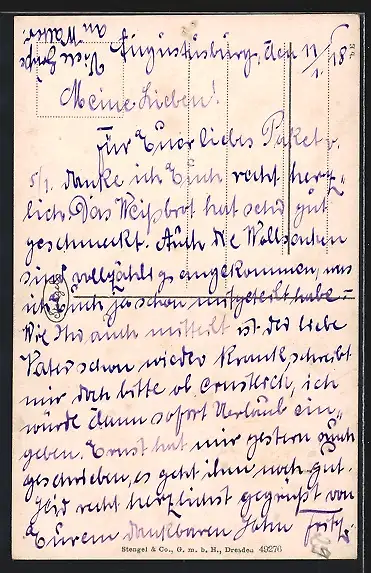 Viele Grüße
an Walter.
Augustusburg, den 11/1. 18.
Meine Lieben!
Für Euer liebes Paket v.
5/1. danke ich Euch recht herz-
lich. Das Weißbrot hat sehr gut
geschmeckt. Auch die Wollsachen
sind vollzählig angekommen, was
ich Euch ja schon mitgeteilt habe.
Wie Ihr auch mitteilt ist der liebe
Vater schon wieder krank, schreibt
mir doch bitte ob ernstlich, ich
würde dann sofort Urlaub ein-
geben. Ernst hat mir gestern auch
geschrieben, es geht ihm noch gut.
Seid recht herzlichst gegrüßt von
Eurem dankbaren Sohn Fritz.
Stengel & Co., G. m. b. H., Dresden 49276